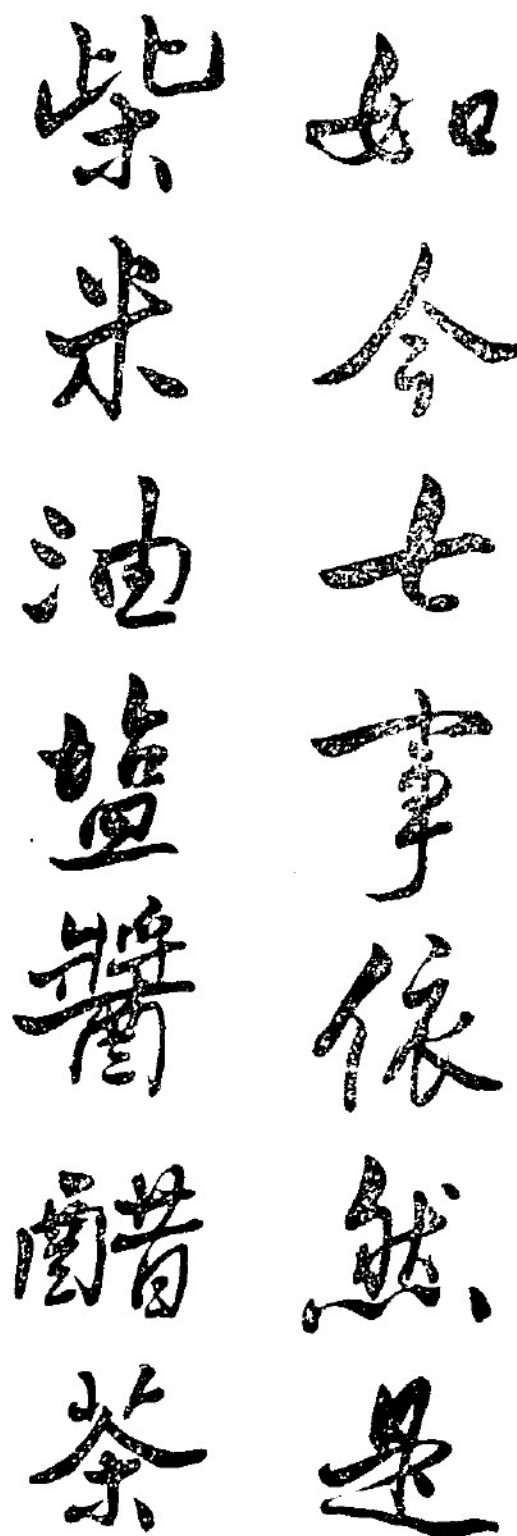 如今七事依然是
柴米油塩醬醋茶